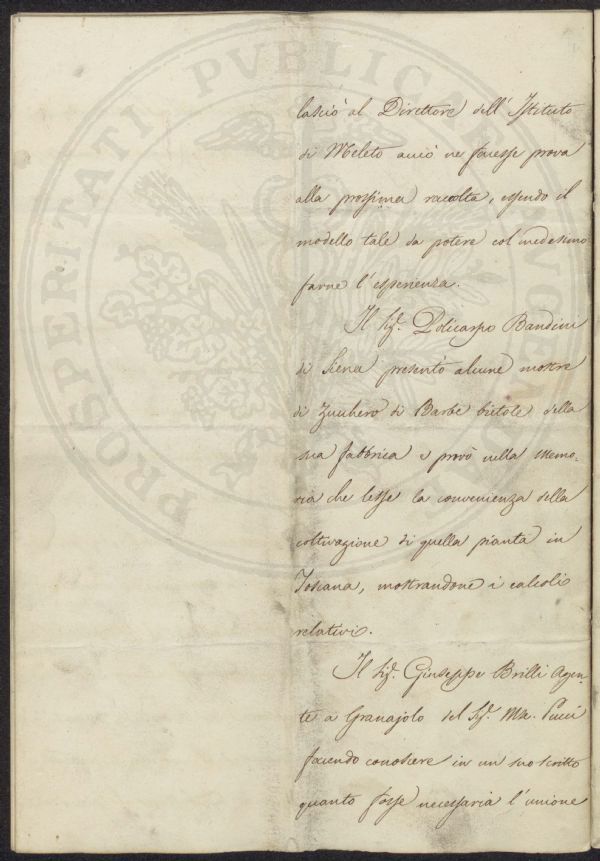 lasciò al Direttore dell'Istituto
di Meleto acciò ne facesse prova
alla prossima raccolta, essendo il
modello tale da potere col medesimo
farne l'esperienza.
Il Sig. Policarpo Bandini
di Siena presentò alcune mostre
di Zucchero di Barbe bietole della
sua fabbrica e provò nella Memo-
ria che lesse la convenienza della
coltivazione di quella pianta in
Toscana, mostrandone i calcoli
relativi.
Il Sig. Giuseppe Brilli Agen-
te a Granajolo del Sig. Mse. Pucci
facendo conoscere in un suo scritto
quanto fosse necessaria l'unione
PROSPERITATI PVBLICAE AVGENDAE